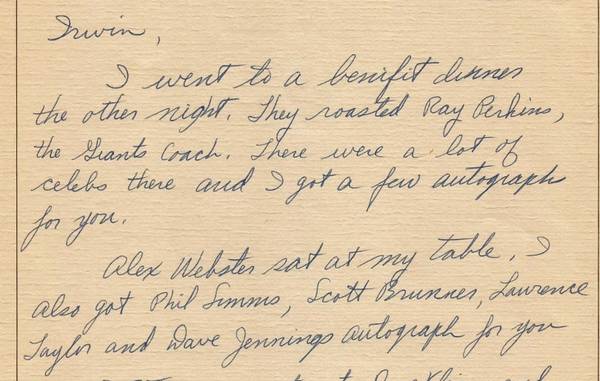 Irwin,
I went to a benifit dinner
the other night. They roasted Ray Perkins,
the Giants Coach. There were a lot of
celebs there and I got a few autograph
for you.
Alex Webster sat at my table. I
also got Phil Simms, Scott Brunner, Lawrence
Taylor and Dave Jennings autograph for you